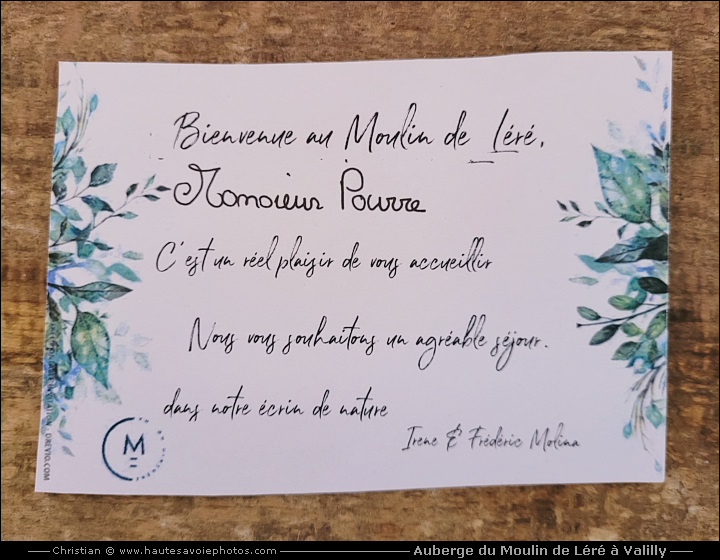 Bienvenue au Moulin de Léré,
Monsieur Pourre
C'est un réel plaisir de vous accueillir
Nous vous souhaitons un agréable séjour.
dans notre écrin de nature
Irene & Frédéric Molina
M
DREVIO.COM
Christian © www.hautesavoiephotos.com
Auberge du Moulin de Léré à Valilly